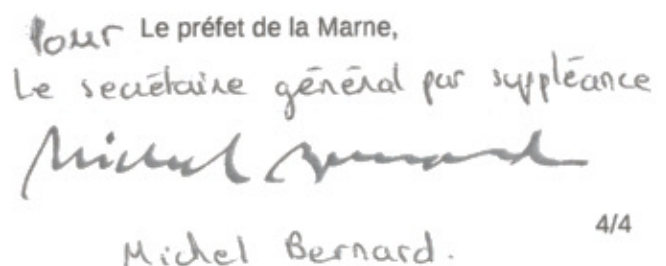 Pour Le préfet de la Marne,
Le secrétaire général par suppléance
Michel Bernard
4/4
Michel Bernard.